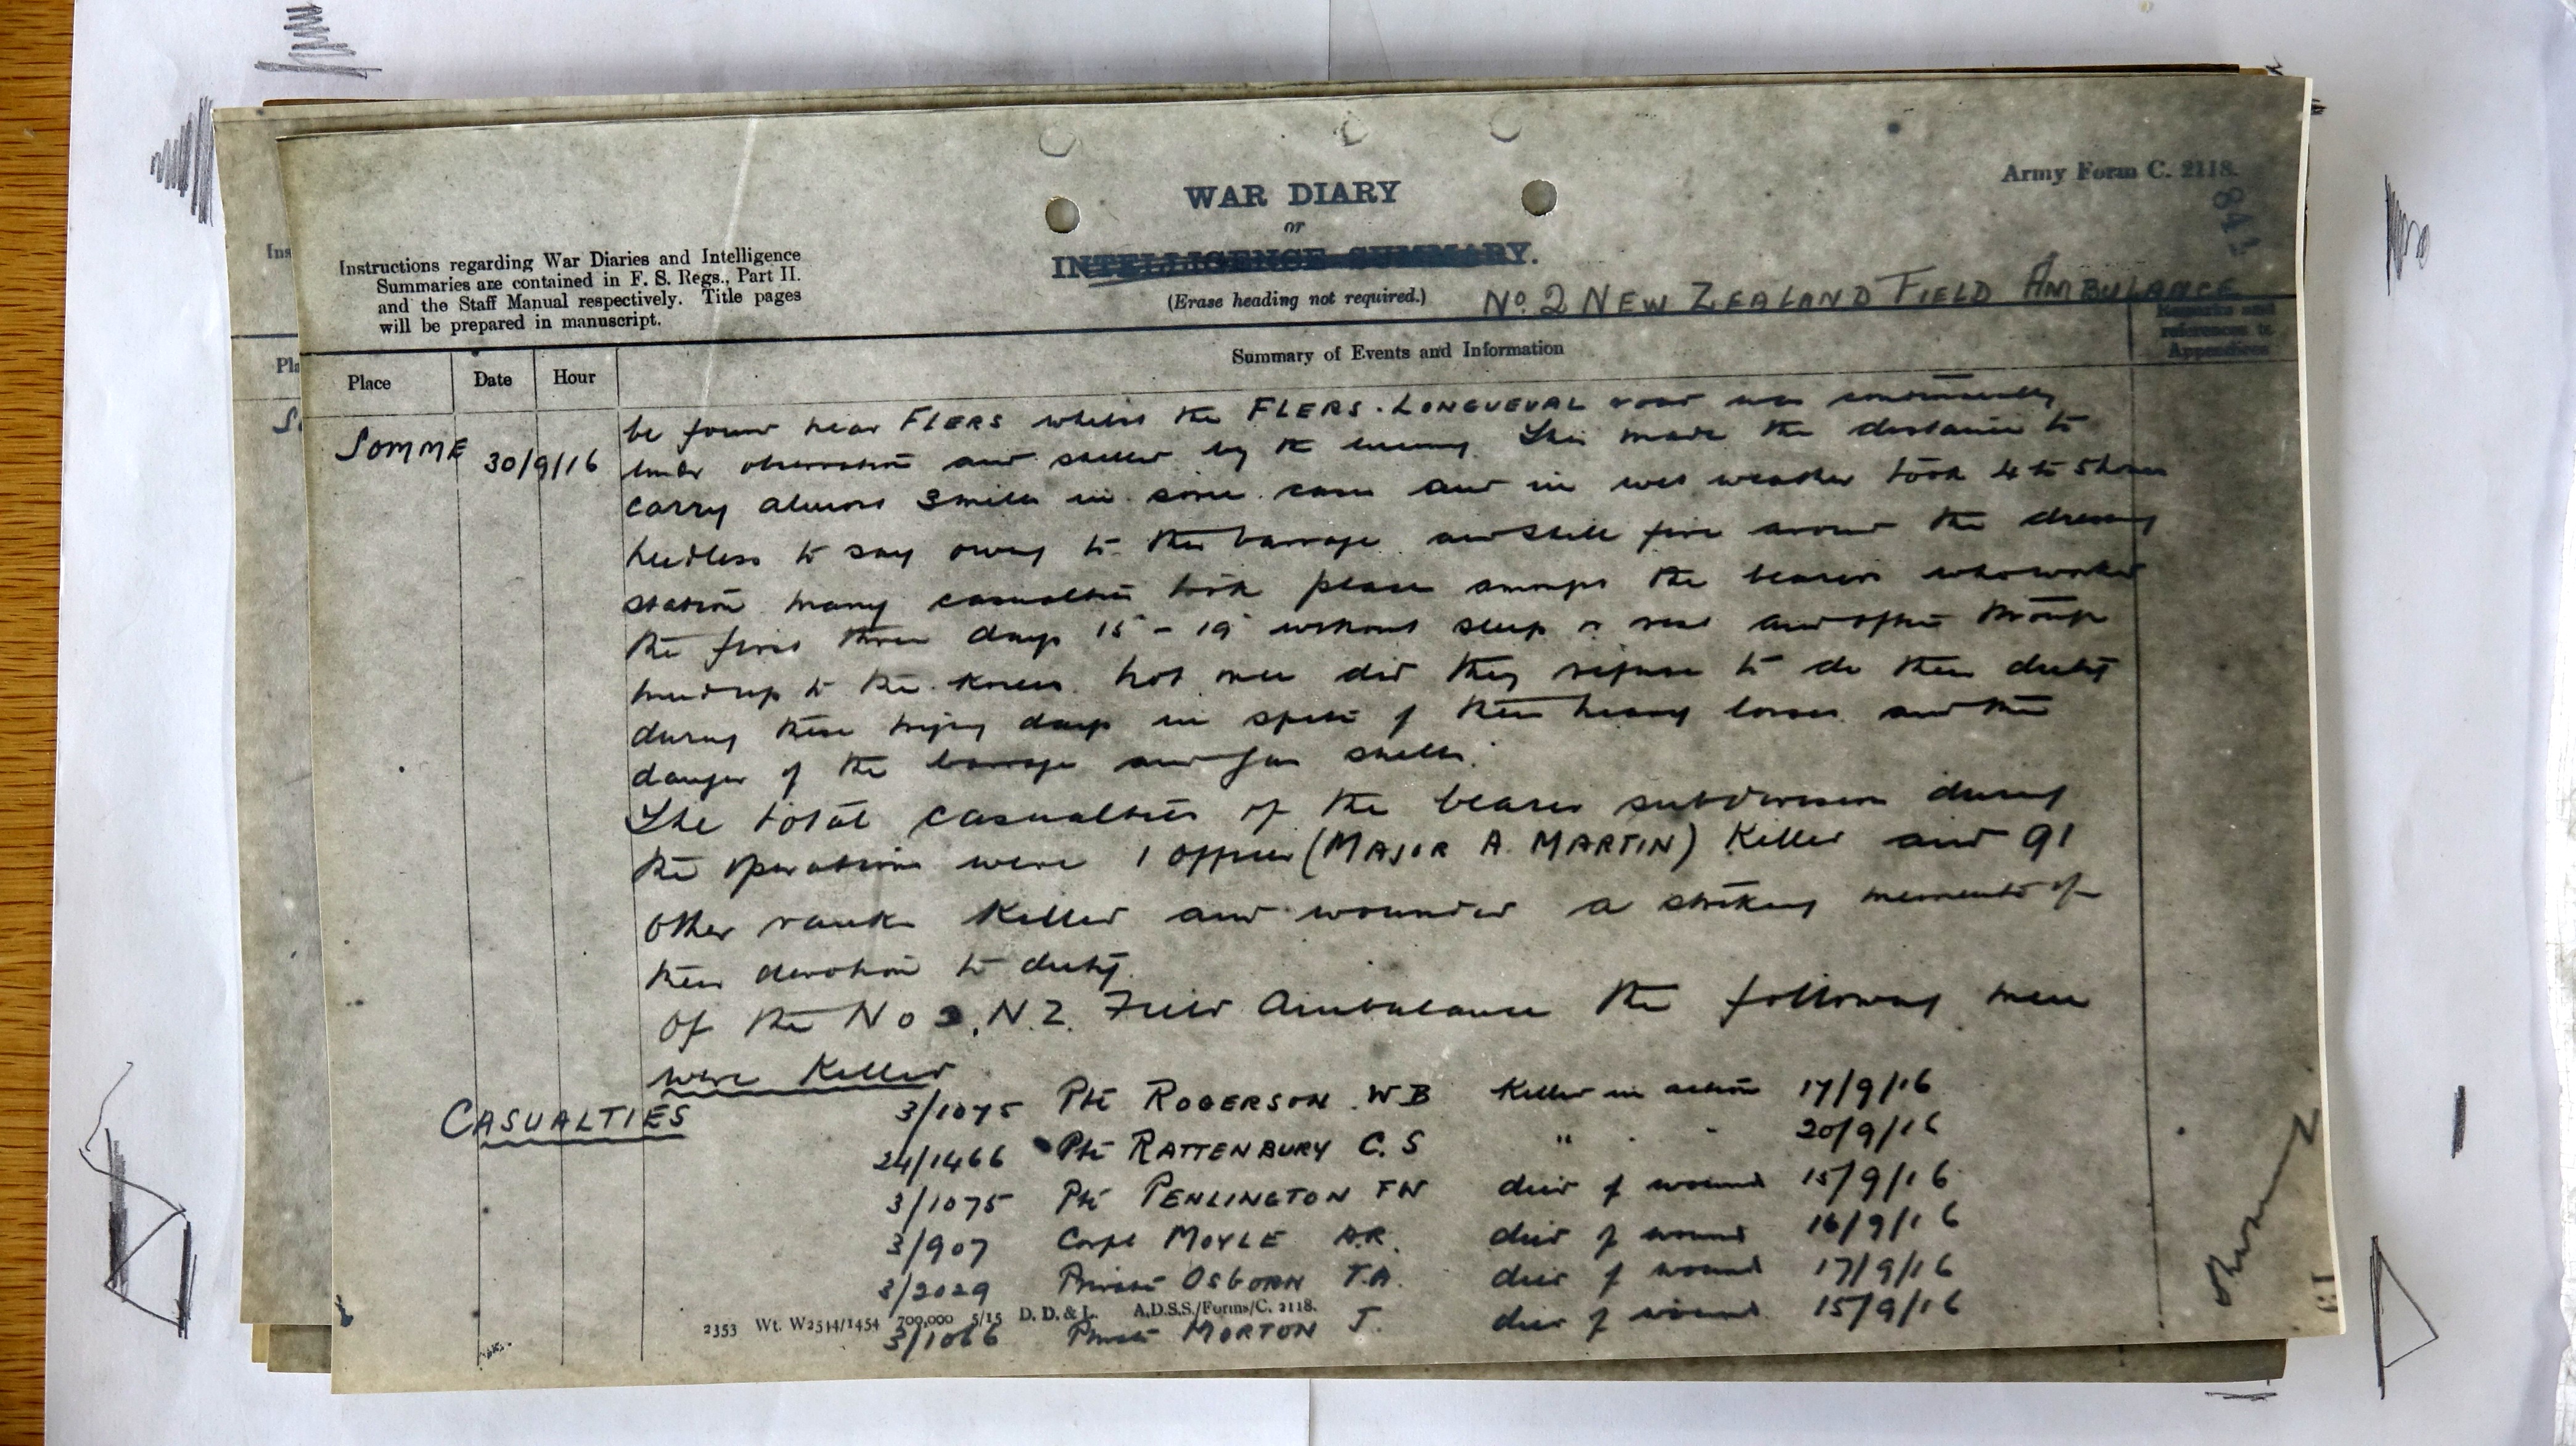 Army Form C. 2118.
WAR DIARY
or
INTELLIGENCE SUMMARY.
(Erase heading not required.)
Instructions regarding War Diaries and Intelligence
Summaries are contained in F. S. Regs., Part II.
and the Staff Manual respectively. Title pages
will be prepared in manuscript.
No. 2 NEW ZEALAND FIELD AMBULANCE
Place Date Hour Summary of Events and Information Remarks and references to Appendices
SOMME 30/9/16
be found near FLERS whilst the FLERS. LONGUEVAL road was continually
under observation and shelled by the enemy. This made the distance to
carry almost 3 miles in some cases and in wet weather took 4 to 5 hours
needless to say owing to the barrage and shell fire around the dressing
station many casualties took place amongst the bearers who worked
the first three days 15 - 19 without sleep or rest and often through
mud up to the knees. Not once did they refuse to do their duty
during these trying days in spite of their heavy losses and the
danger of the barrage and gas shells.
The total casualties of the bearer subdivision during
the operations were 1 officer (MAJOR A. MARTIN) Killed and 91
other ranks Killed and wounded a striking memento of
their devotion to duty.
Of the No 2. N.Z. Field Ambulance the following men
were Killed
CASUALTIES
3/1075 Pte ROGERSON. W B Killed in action 17/9/16
24/1466 Pte RATTENBURY C. S " . - 20/9/16
3/1075 Pte PENLINGTON FN died of wound 15/9/16
3/907 Corpl MOYLE A.R. died of wound 16/9/16
3/2029 Private OSBORN T.A. died of wound 17/9/16
3/1066 Private MORTON J. died of wound 15/9/16
2353 Wt. W2514/1454 700,000 5/15 D. D. & L. A.D.S.S./Forms/C. 2118.